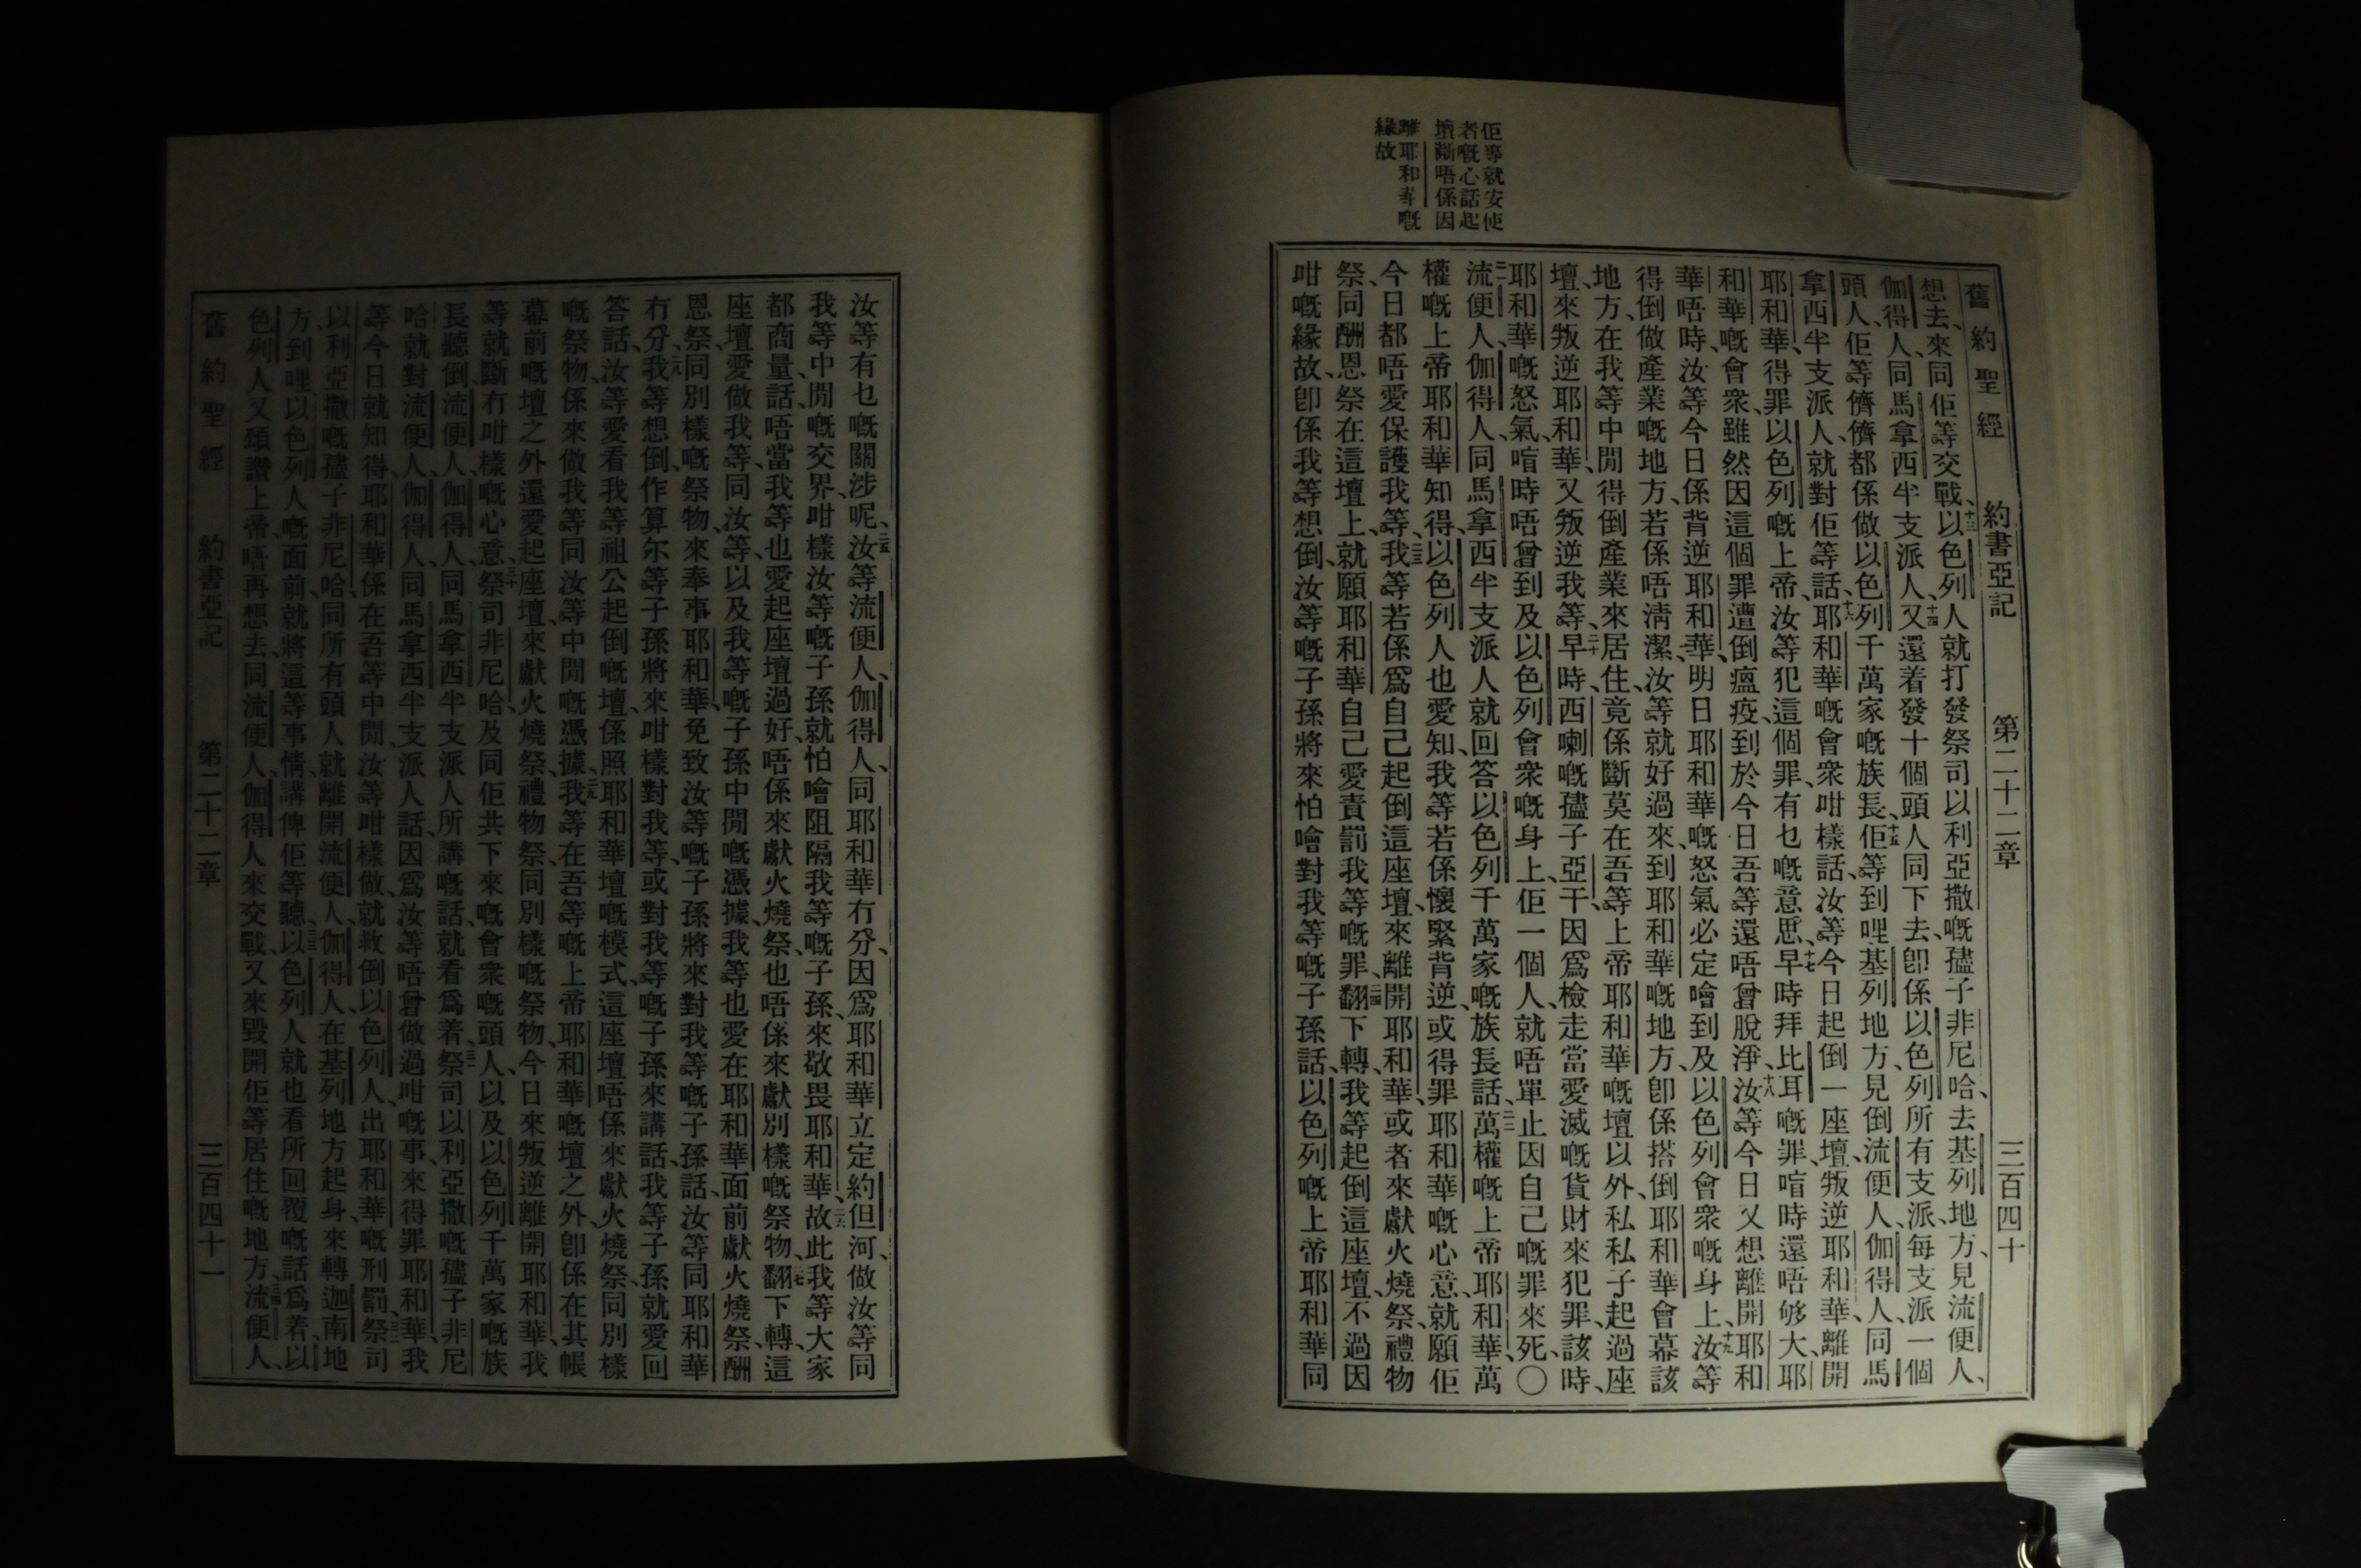 舊約聖經　約書亞記　第二十二章　三百四十
想去、來同佢等交戰、十三以色列人就打發祭司以利亞撒嘅孻子非尼哈、去基列地方、見流便人、
伽得人、同馬拿西半支派人、十四又還着發十個頭人同下去、卽係以色列所有支派、每支派一個
頭人、佢等儕儕都係做以色列千萬家嘅族長、十五佢等到哩基列地方見倒流便人、伽得人、同馬
拿西半支派人、就對佢等話、十六耶和華嘅會衆咁樣話、汝等今日起倒一座壇、叛逆耶和華、離開
耶和華、得罪以色列嘅上帝、汝等犯這個罪、有乜嘅意思、十七早時拜比耳嘅罪、喑時還唔够大、耶
和華嘅會衆、雖然因這個罪遭倒瘟疫、到於今日吾等還唔曾脫淨、十八汝等今日又想離開耶和
華唔時、汝等今日係背逆耶和華、明日耶和華嘅怒氣必定噲到及以色列會衆嘅身上、十九汝等
得倒做產業嘅地方、若係唔淸潔、汝等就好過來、到耶和華嘅地方、卽係搭倒耶和華會幕該
地方、在我等中間得倒產業來居住、竟係斷莫在吾等上帝耶和華嘅壇以外、私私子起過座
壇、來叛逆耶和華、又叛逆我等、二十早時、西喇嘅孻子亞干、因爲檢走當愛滅嘅貨財來犯罪、該時、
耶和華嘅怒氣、喑時唔曾到及以色列會衆嘅身上、佢一個人、就唔單止因自己嘅罪來死、〇
二一流便人、伽得人、同馬拿西半支派人就回答以色列千萬家嘅族長話、二二萬權嘅上帝耶和華、萬
權嘅上帝耶和華知得、以色列人也愛知、我等若係懷緊背逆、或得罪耶和華嘅心意、就願佢
今日都唔愛保護我等、二三我等若係爲自己起倒這座壇、來離開耶和華、或者來獻火燒祭、禮物
祭、同酬恩祭在這壇上、就願耶和華自己愛責罰我等嘅罪、二四翻下轉、我等起倒這座壇、不過因
咁嘅緣故、卽係我等想倒、汝等嘅子孫將來怕噲對我等嘅子孫話、以色列嘅上帝耶和華同
佢等就安使
者嘅心話起
壇斷唔係因
離耶和華嘅
緣故
汝等有乜嘅關涉呢、二五汝等流便人、伽得人、同耶和華冇分、因爲耶和華立定約但河、做汝等同
我等中間嘅交界、咁樣汝等嘅子孫就怕噲阻隔我等嘅子孫、來敬畏耶和華、二六故此我等大家
都商量話、唔當我等也愛起座壇過好、唔係來獻火燒祭、也唔係來獻別樣嘅祭物、二七翻下轉、這
座壇愛做我等、同汝等、以及我等嘅子孫中間嘅憑據、我等也愛在耶和華面前獻火燒祭、酬
恩祭、同別樣嘅祭物、來奉事耶和華、免致汝等嘅子孫將來對我等嘅子孫話、汝等同耶和華
冇分、二八我等想倒、作算尔等子孫將來咁樣對我等、或對我等嘅子孫來講話、我等子孫就愛回
答話、汝等愛看我等祖公起倒嘅壇、係照耶和華壇嘅模式、這座壇唔係來獻火燒祭、同別樣
嘅祭物、係來做我等同汝等中間嘅憑據、二九我等在吾等嘅上帝耶和華嘅壇之外、卽係在其帳
幕前嘅壇之外、還愛起座壇、來獻火燒祭、禮物祭、同別樣嘅祭物、今日來叛逆離開耶和華、我
等就斷冇咁樣嘅心意、三十祭司非尼哈、及同佢共下來嘅會衆嘅頭人、以及以色列千萬家嘅族
長聽倒流便人、伽得人、同馬拿西半支派人所講嘅話、就看爲着、三一祭司以利亞撒嘅孻子非尼
哈就對流便人、伽得人、同馬拿西半支派人話、因爲汝等唔曾做過咁嘅事、來得罪耶和華、我
等今日就知得、耶和華係在吾等中間、汝等咁樣做、就救倒以色列人、出耶和華嘅刑罰、三二祭司
以利亞撒嘅孻子非尼哈、同所有頭人、就離開流便人、伽得人、在基列地方起身、來轉迦南地
方、到哩以色列人嘅面前、就將這等事情、講俾佢等聽、三三以色列人就也看所回覆嘅話爲着、以
色列人又頌讚上帝、唔再想去同流便人、伽得人來交戰、又來毀開佢等居住嘅地方、三四流便人、
舊約聖經　約書亞記　第二十二章　三百四十一